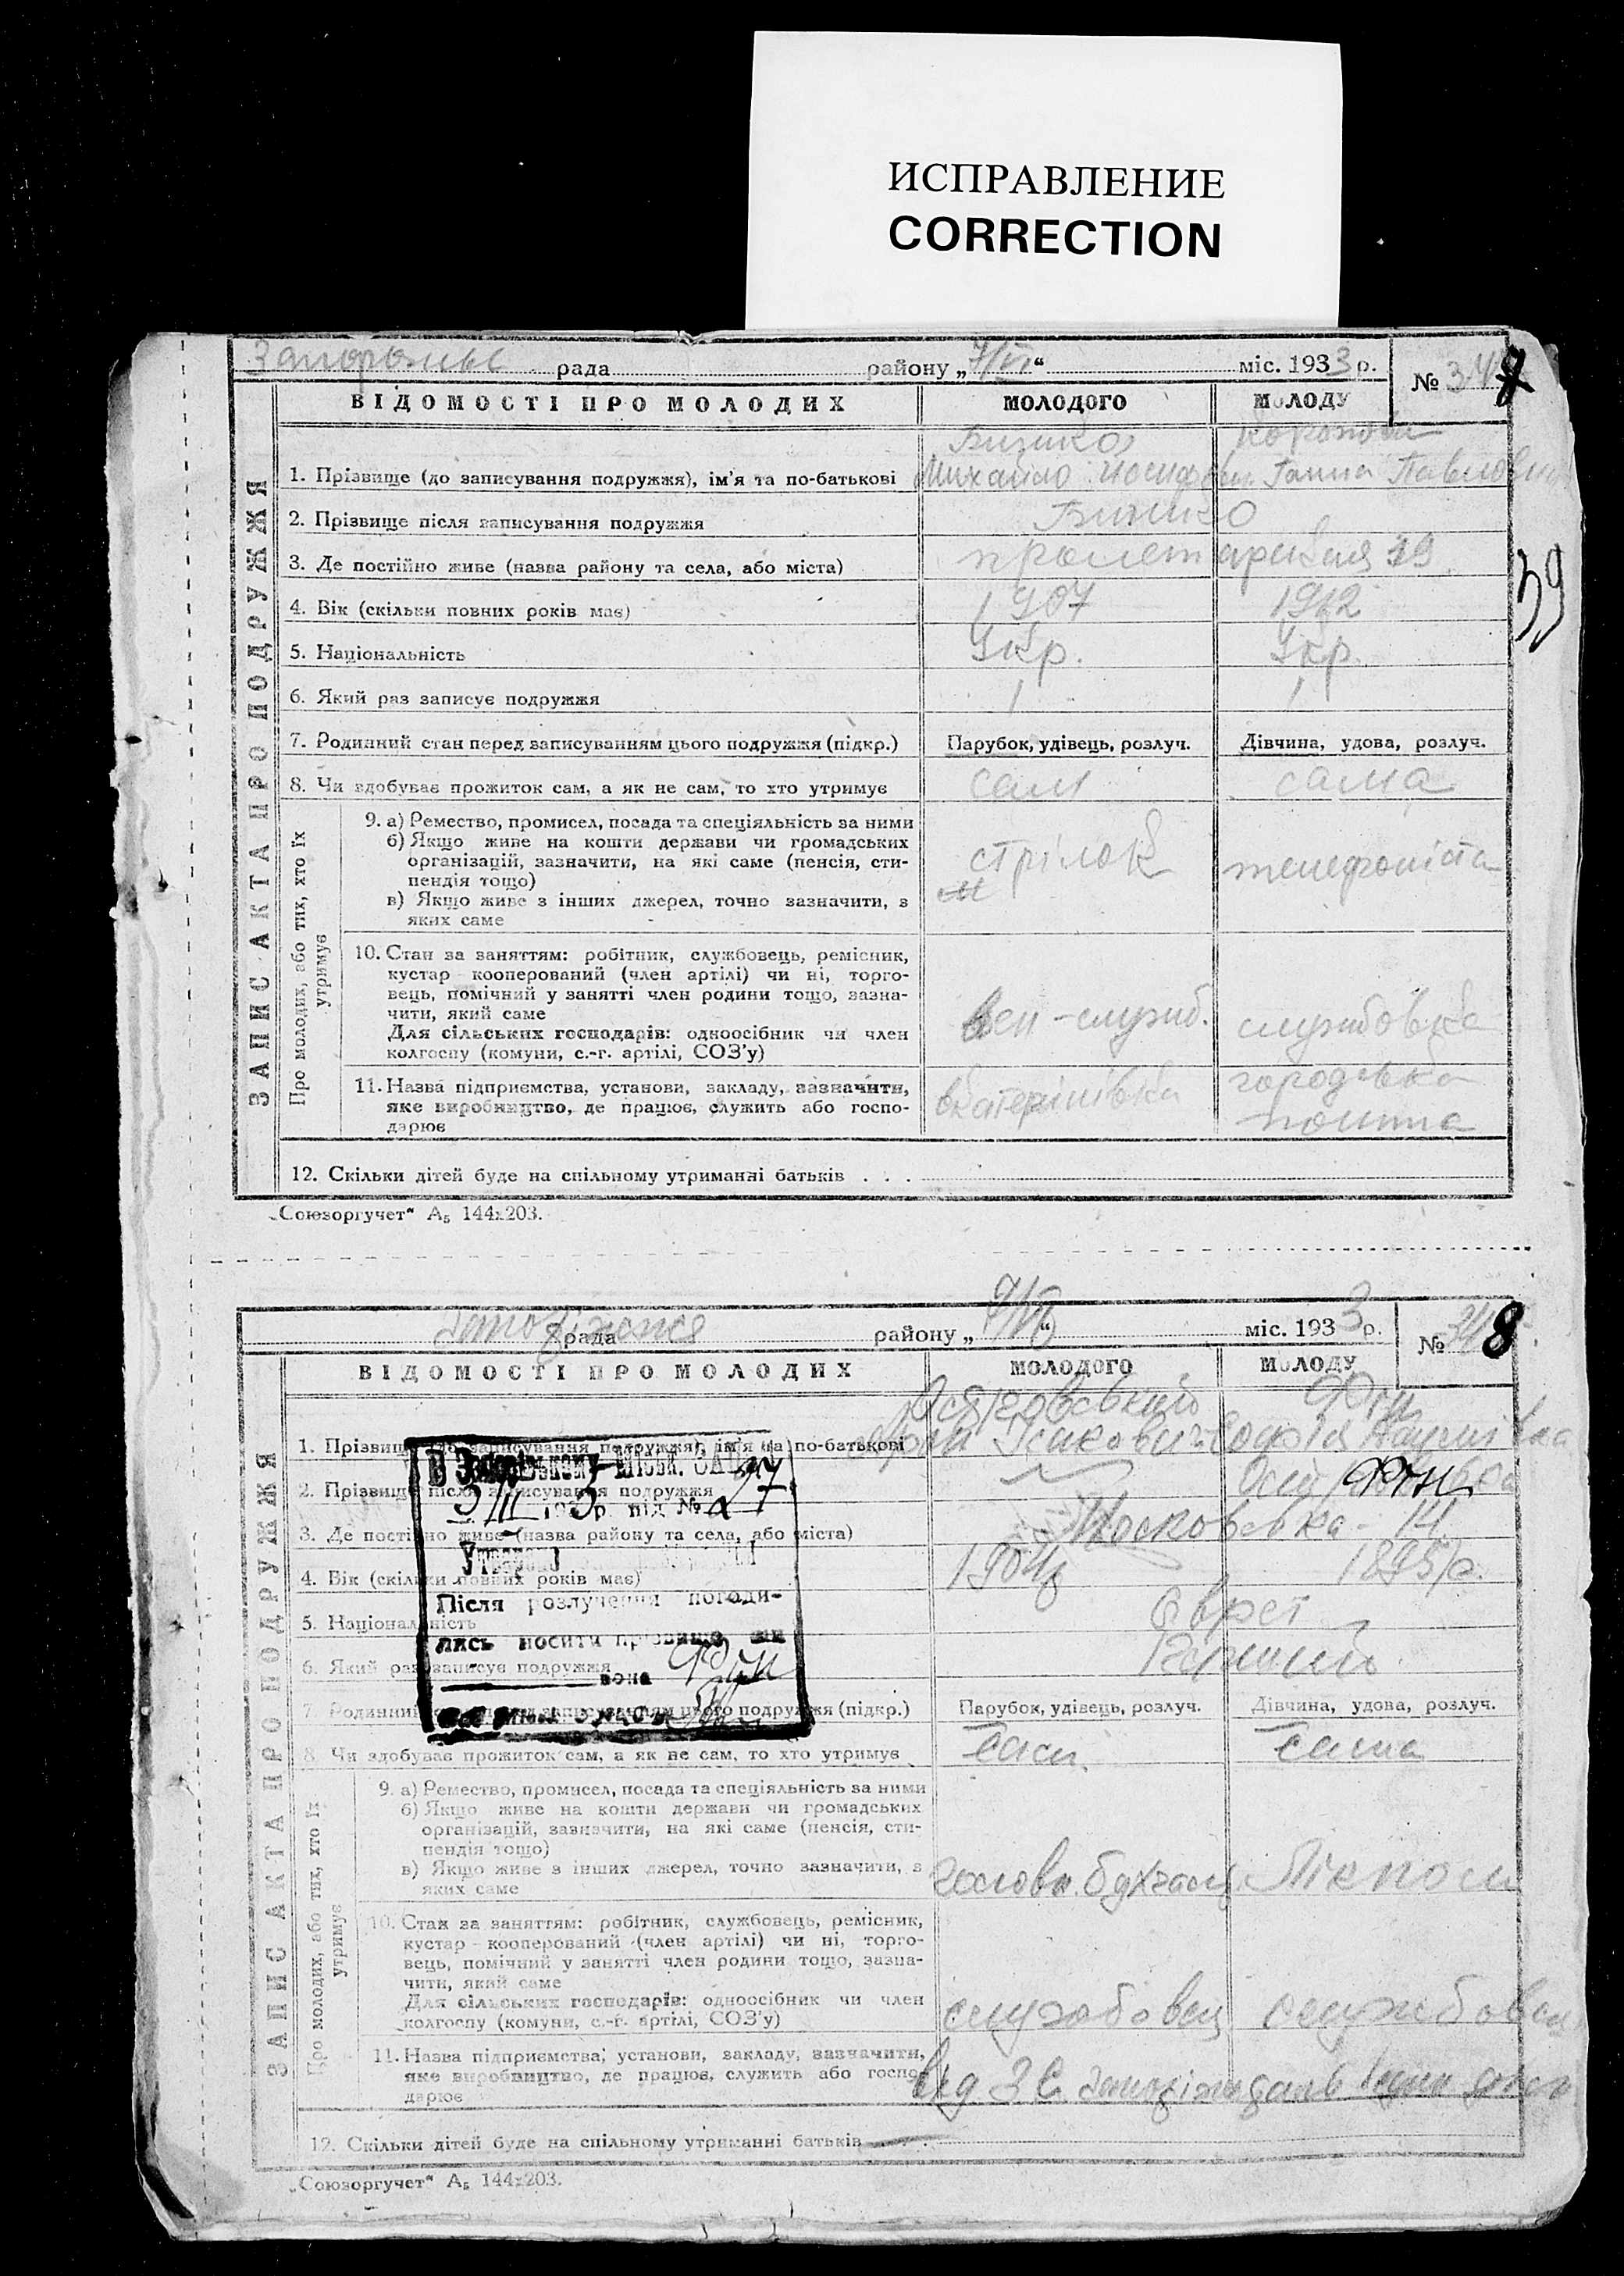 ИСПРАВЛЕНИЕ
CORRECTION
рада району „7/VI“ міс. 1933 р.
№ 347
ВІДОМОСТІ ПРО МОЛОДИХ МОЛОДОГО МОЛОДУ
ЗАПИС АКТА ПРО ПОДРУЖЖЯ
1. Прізвище (до записування подружжя), ім'я та по-батькові Михайло Ганна Павловна
2. Прізвище після записування подружжя
3. Де постійно живе (назва району та села, або міста)
39
4. Вік (скільки повних років має) 1907 1912
5. Національність Укр. Укр.
6. Який раз записує подружжя 1 1
7. Родинний стан перед записуванням цього подружжя (підкр.) Парубок, удівець, розлуч. Дівчина, удова, розлуч.
8. Чи здобуває прожиток сам, а як не сам, то хто утримує сам сама
Про молодих, або тих, хто їх утримує
9. а) Ремество, промисел, посада та спеціяльність за ними
б) Якщо живе на кошти держави чи громадських
організацій, зазначити, на які саме (пенсія, сти-
пендія тощо)
стрілок телефоніста
в) Якщо живе з інших джерел, точно зазначити, з
яких саме
10. Стан за заняттям: робітник, службовець, ремісник,
кустар кооперований (член артілі) чи ні, торго-
вець, помічний у занятті член родини тощо, зазна-
чити, який саме
Для сільських господарів: одноосібник чи член
колгоспу (комуни, с.-г. артілі, СОЗ'у)
службовка
11. Назва підприємства, установи, закладу, зазначити,
яке виробництво, де працює, служить або госпо-
дарює
пошта
12. Скільки дітей буде на спільному утриманні батьків . . .
„Союзоргучет“ А₅ 144х203.
рада району „7/VI“ міс. 1933 р.
№ 348
ВІДОМОСТІ ПРО МОЛОДИХ МОЛОДОГО МОЛОДУ
ЗАПИС АКТА ПРО ПОДРУЖЖЯ
1. Прізвище (до записування подружжя), ім'я та по-батькові Ісакович Софія Наумівна
2. Прізвище після записування подружжя
3. Де постійно живе (назва району та села, або міста) Московська - 14
4. Вік (скільки повних років має) 1895 р.
5. Національність Єврєї
6. Який раз записує подружжя
7. Родинний стан перед записуванням цього подружжя (підкр.) Парубок, удівець, розлуч. Дівчина, удова, розлуч.
8. Чи здобуває прожиток сам, а як не сам, то хто утримує Сам Сама
Після розлучення погоди-
лись носити прізвище він
вона
Про молодих, або тих, хто їх утримує
9. а) Ремество, промисел, посада та спеціяльність за ними
б) Якщо живе на кошти держави чи громадських
організацій, зазначити, на які саме (пенсія, сти-
пендія тощо)
в) Якщо живе з інших джерел, точно зазначити, з
яких саме
голова. бухгалт. Лікпом
10. Стан за заняттям: робітник, службовець, ремісник,
кустар кооперований (член артілі) чи ні, торго-
вець, помічний у занятті член родини тощо, зазна-
чити, який саме
Для сільських господарів: одноосібник чи член
колгоспу (комуни, с.-г. артілі, СОЗ'у)
службовец службовец
11. Назва підприємства, установи, закладу, зазначити,
яке виробництво, де працює, служить або госпо-
дарює
12. Скільки дітей буде на спільному утриманні батьків
„Союзоргучет“ А₅ 144х203.